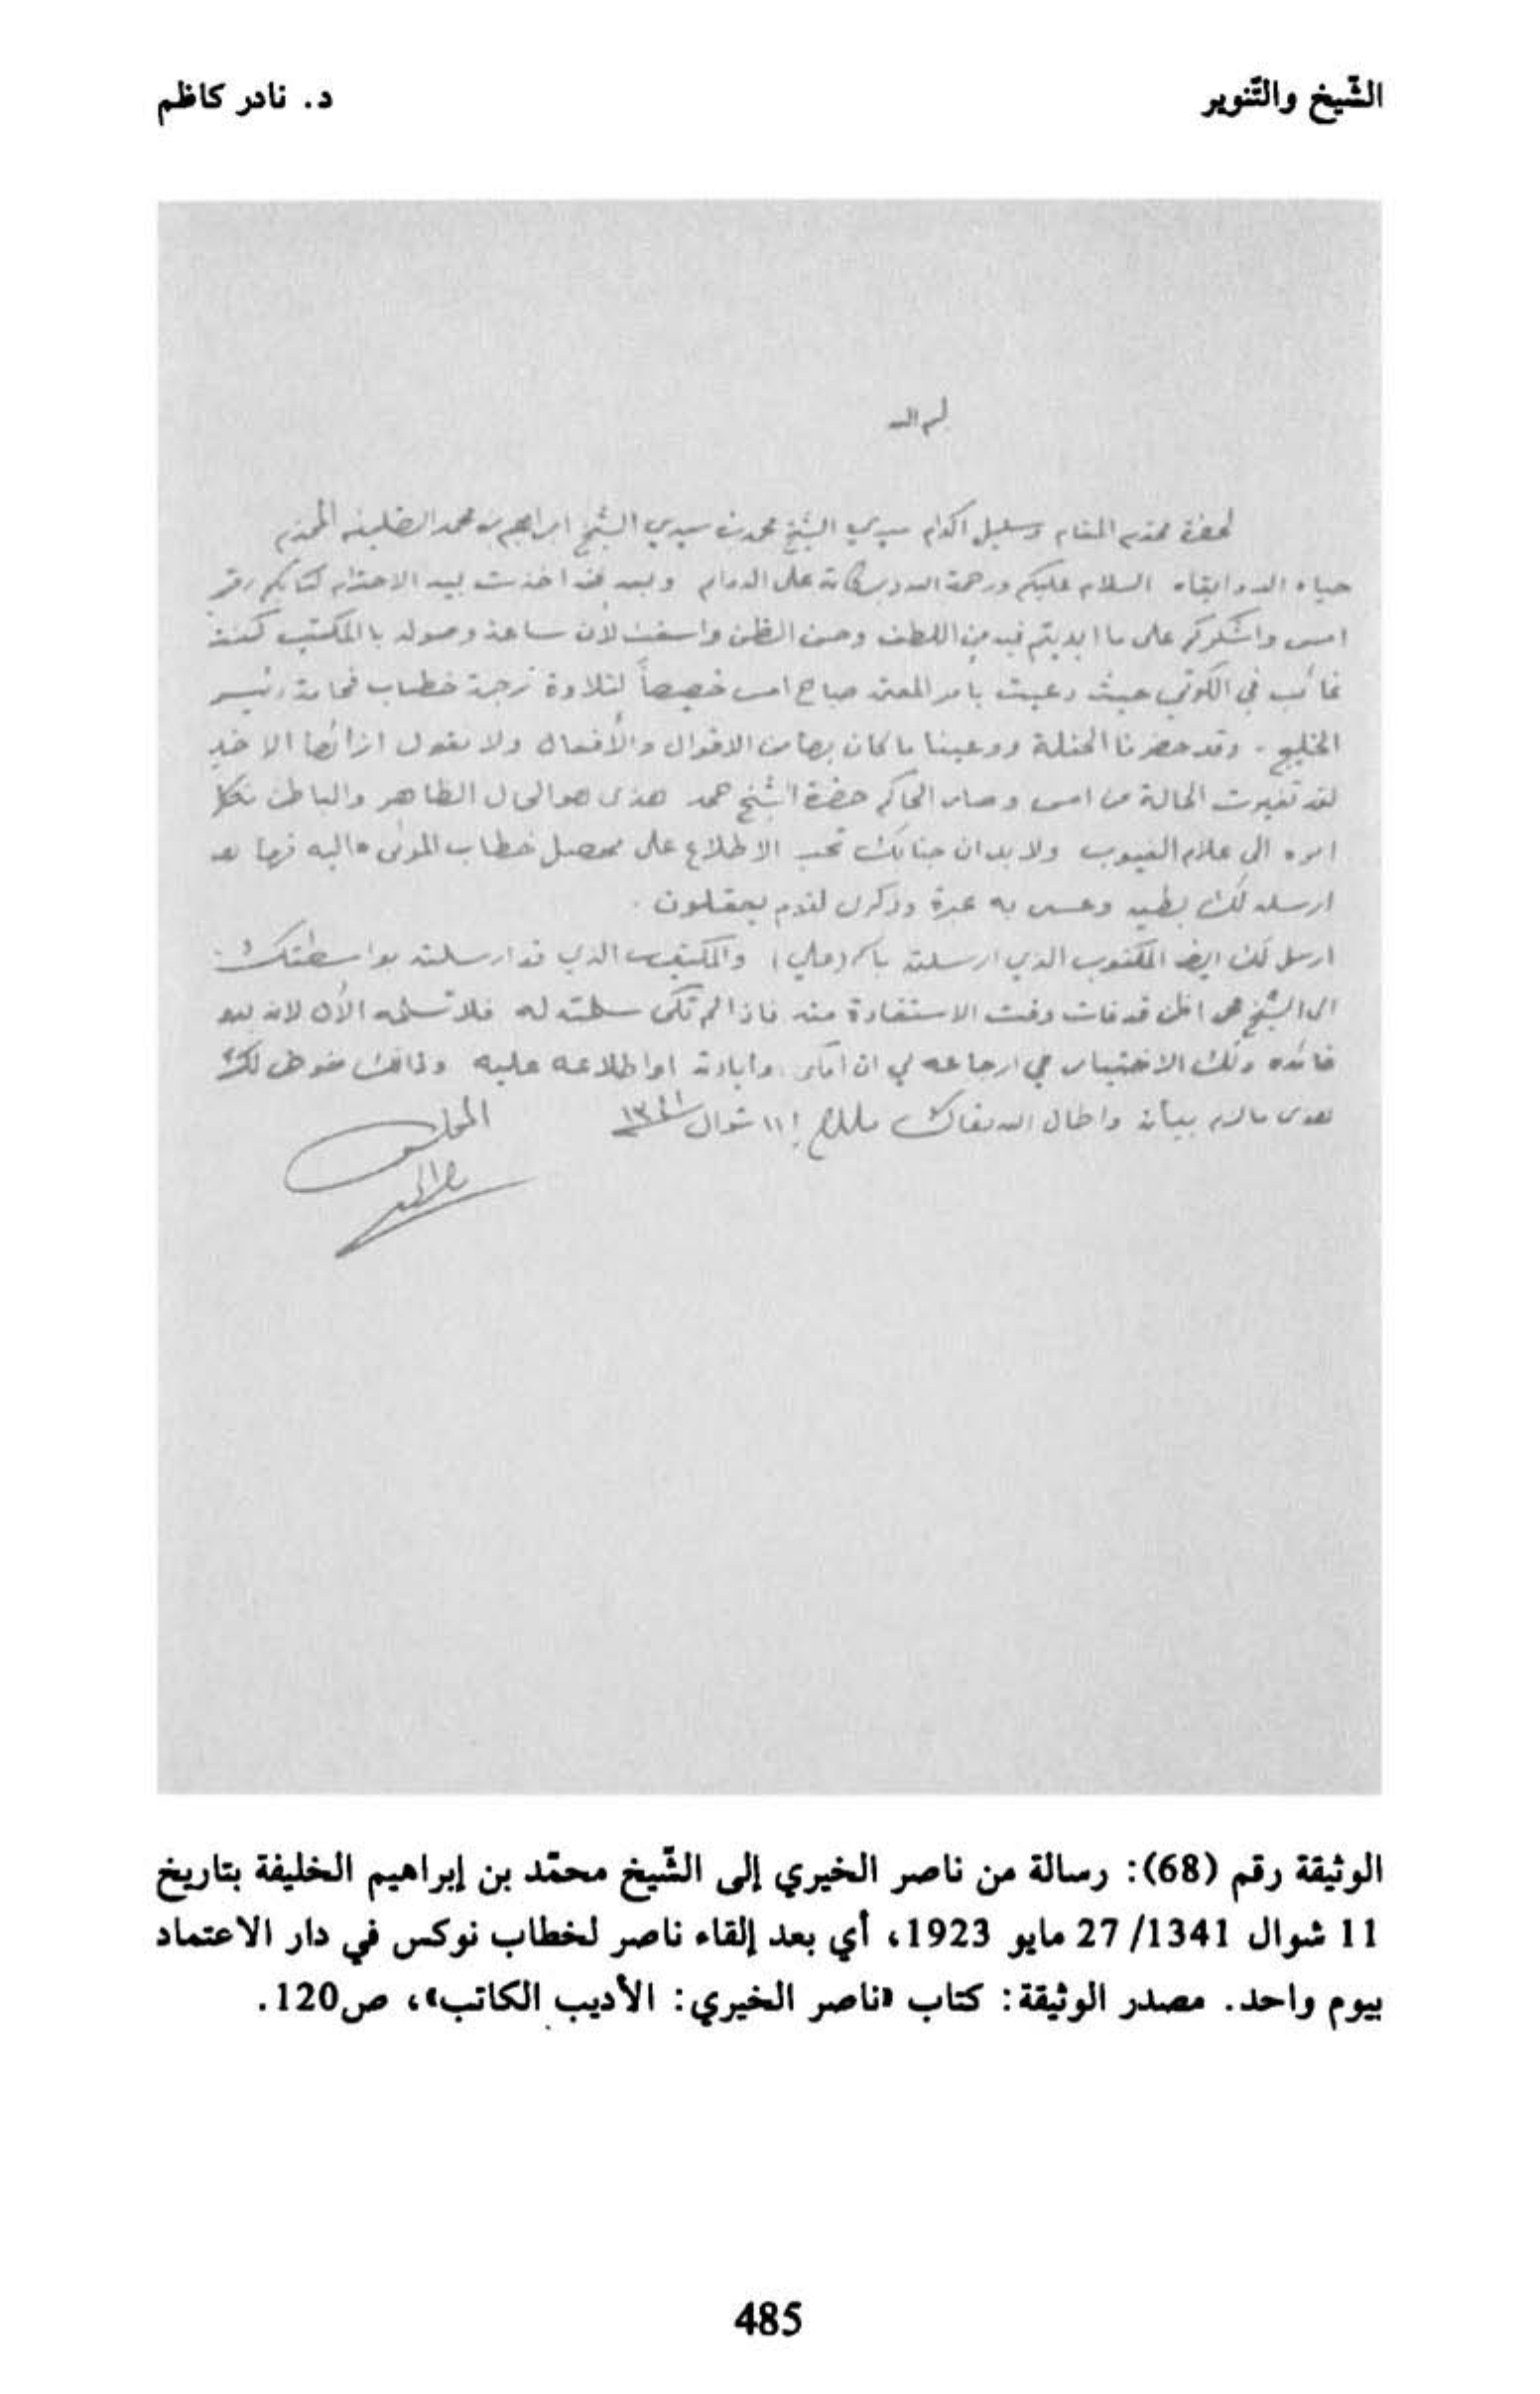 الشّيخ والتّنوير
د. نادر كاظم
بسم الله
لحضرة محترم المقام وسليل الكرام سيدي الشيخ محمد بن سيدي الشيخ ابراهيم بن محمد الخليفه المحترم
حياه الله وابقاه السلام عليكم ورحمة الله وبركاته على الدوام وبعد فقد اخذت بيد الاحترام كتابكم رقم
امس واشكركم على ما ابديتم فيه من اللطف وحسن الظن واسفت لان ساعة وصوله با المكتب كنت
غائب في الكوتي حيث دعيت بامر المعتمد صباح امس خصيصاً لتلاوة ترجمة خطاب فخامة رئيس
الخليج . وقد حضرنا الحفلة ووعينا ما كان بها من الاقوال والأفعال ولا نقول ازائها الا خير
لقد تغيرت الحالة من امس وصار الحاكم حضرة الشيخ حمد هذى هو الحال الظاهر والباطن نكل
امره الى علام الغيوب ولا بد ان جنابك تحب الاطلاع على محصل خطاب المومى اليه
ارسله لك بطيه وعسى به عبرة وذكرى لقوم يعقلون .
ارسل لك ايضا المكتوب الذي ارسلته باكر (علي) والمكتوب الذي قد ارسلته بواسطتك
الى الشيخ اظن قد فات وقت الاستفادة منه فاذا لم تكن سلمته له فلا تسلمه الأن لانه
فائده ولك الاختيار في ارجاعه لي ان امكن وابادته او اطلاعه عليه مفوض لك
هدى ما لزم بيانه واطال الله بقاك ١١ شوال ١٣٤١
المخلص
ناصر الخيري
الوثيقة رقم (68): رسالة من ناصر الخيري إلى الشّيخ محمّد بن إبراهيم الخليفة بتاريخ
11 شوال 1341/ 27 مايو 1923، أي بعد إلقاء ناصر لخطاب نوكس في دار الاعتماد
بيوم واحد. مصدر الوثيقة: كتاب «ناصر الخيري: الأديب الكاتب»، ص120.
485